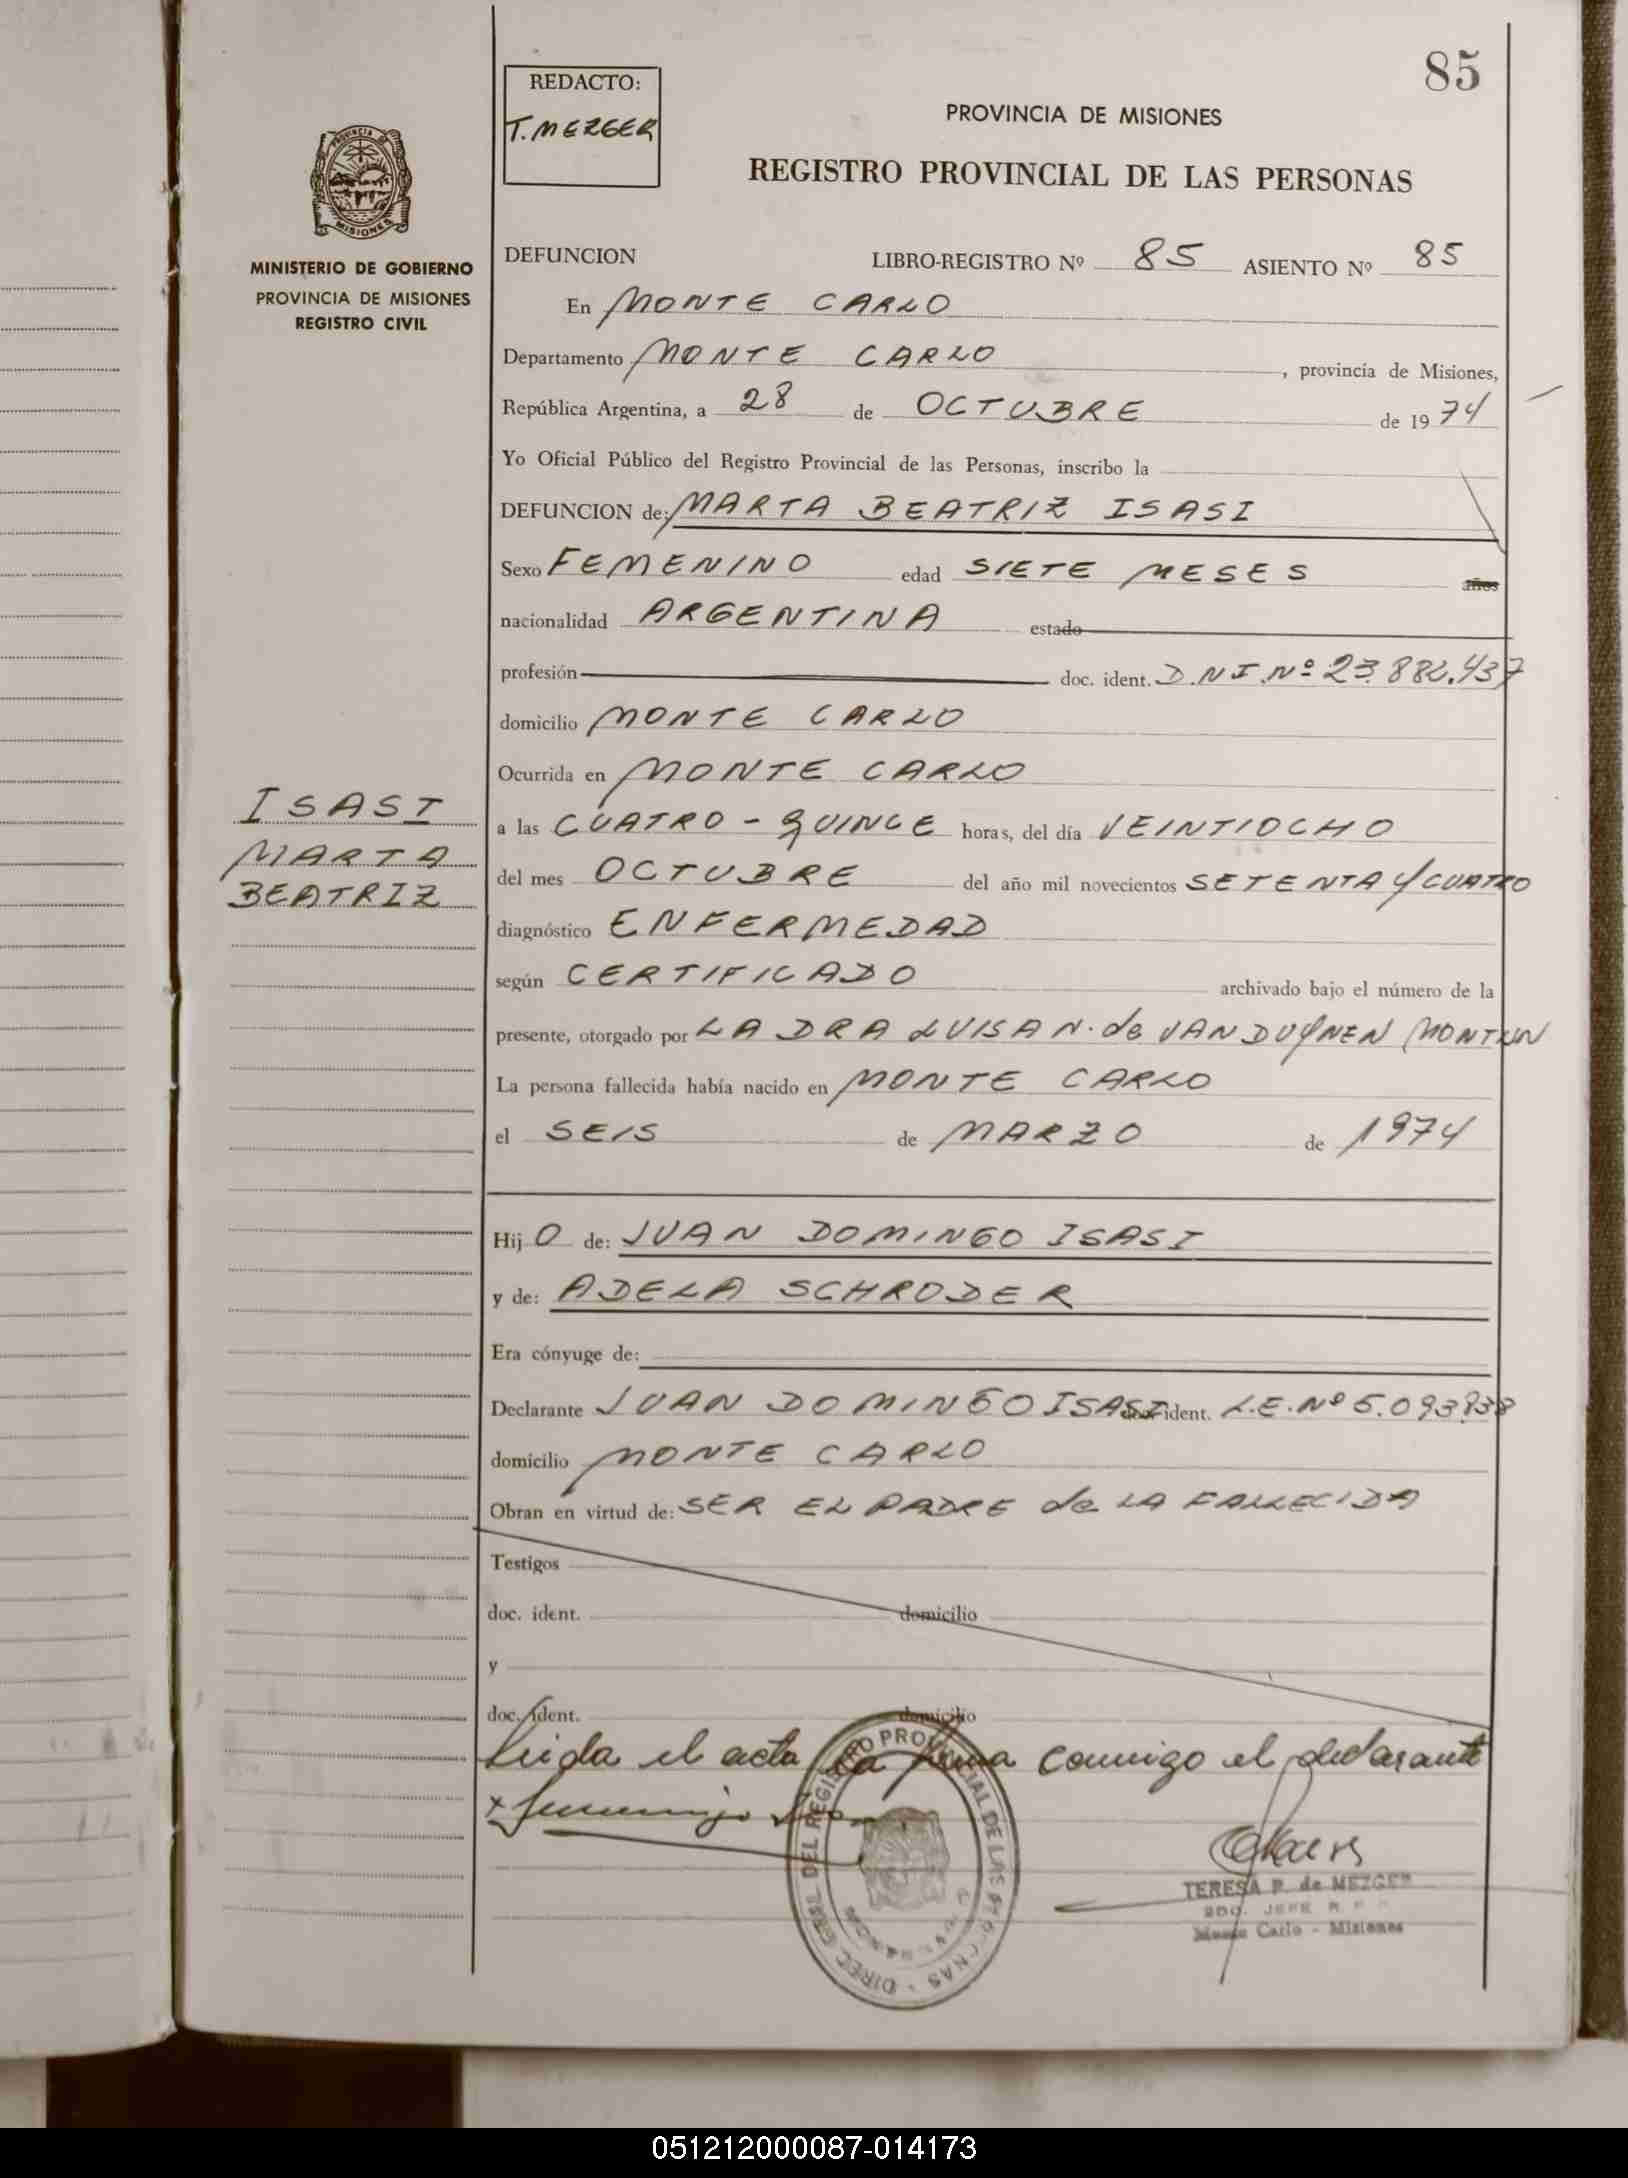 85
REDACTO:
T. MEZGER
PROVINCIA DE MISIONES
REGISTRO PROVINCIAL DE LAS PERSONAS
PROVINCIA DE
MISIONES
MINISTERIO DE GOBIERNO
PROVINCIA DE MISIONES
REGISTRO CIVIL
DEFUNCION LIBRO-REGISTRO Nº 85 ASIENTO Nº 85
En MONTE CARLO
Departamento MONTE CARLO, provincia de Misiones,
República Argentina, a 28 de OCTUBRE de 1974
Yo Oficial Público del Registro Provincial de las Personas, inscribo la
DEFUNCION de: MARTA BEATRIZ ISASI
Sexo FEMENINO edad SIETE MESES años
nacionalidad ARGENTINA estado
profesión doc. ident. D.N.I.Nº 23.882.437
domicilio MONTE CARLO
Ocurrida en MONTE CARLO
ISASI
MARTA
BEATRIZ
a las CUATRO - QUINCE horas, del día VEINTIOCHO
del mes OCTUBRE del año mil novecientos SETENTA Y CUATRO
diagnóstico ENFERMEDAD
según CERTIFICADO archivado bajo el número de la
presente, otorgado por LA DRA LUISA N. de VAN DUYNEN
La persona fallecida había nacido en MONTE CARLO
el SEIS de MARZO de 1974
Hij O de: JUAN DOMINGO ISASI
y de: ADELA SCHRODER
Era cónyuge de:
Declarante JUAN DOMINGO ISASI doc. ident. L.E.Nº 5.093.838
domicilio MONTE CARLO
Obran en virtud de: SER EL PADRE de LA FALLECIDA
Testigos
doc. ident. domicilio
y
doc. ident. domicilio
Leida el acta la firma conmigo el declarante
DIREC. GRAL. DEL REGISTRO PROVINCIAL DE LAS PERSONAS
TERESA P. de MEZGER
2DO. JEFE R. P.
Monte Carlo - Misiones
051212000087-014173